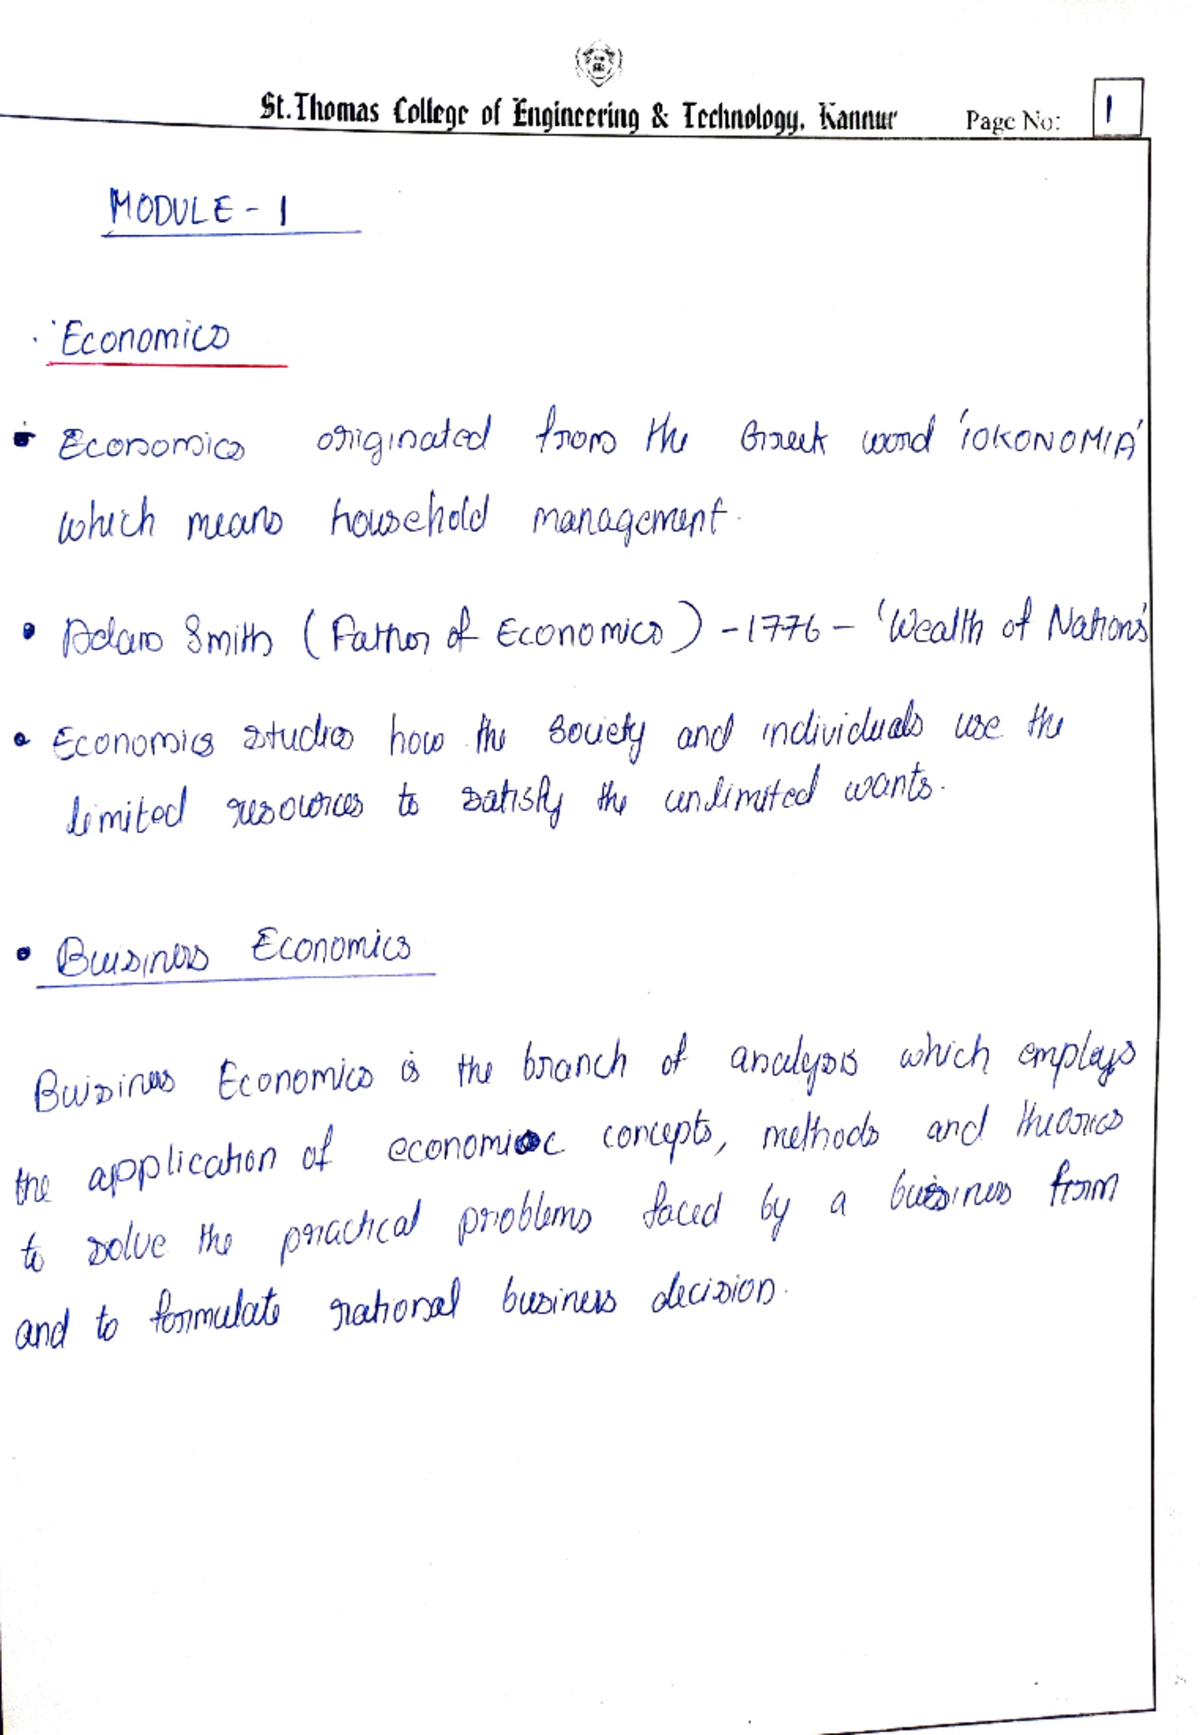 St. Thomas College of Engineering & Technology, Kannur Page No: 1
MODULE - 1
Economics
Economics originated from the Greek word 'IOKONOMIA'
which means household management.
Adam Smith (Father of Economics) - 1776 - 'Wealth of Nations'
Economics studies how the society and individuals use the
limited resources to satisfy the unlimited wants.
Buisiness Economics
Buisiness Economics is the branch of analysis which employs
the application of economic concepts, methods and theories
to solve the practical problems faced by a buisiness firm
and to formulate rational business decision.